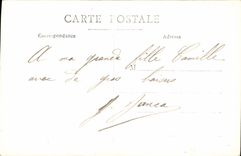 CARTE POSTALE
Correspondance
Adresse
A ma grande fille Camille
avec de gros baisers